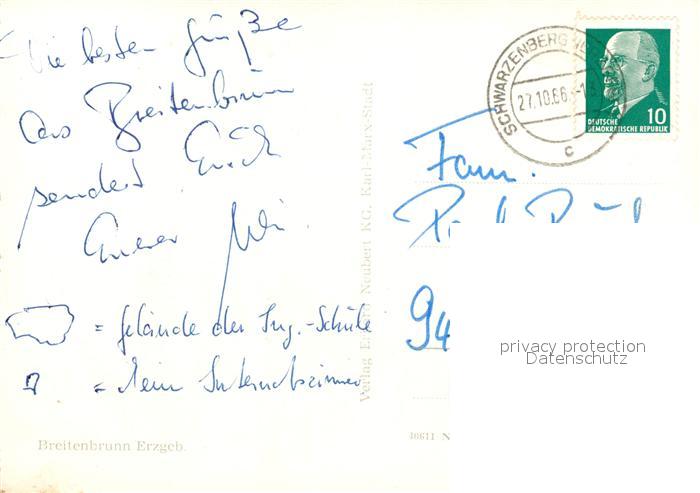 Die besten Grüße
aus Breitenbrunn
sendet Euch
Euer
= Gelände der Ing.-Schule
= mein Internatszimmer
Breitenbrunn Erzgeb.
Verlag Erhard Neubert KG, Karl-Marx-Stadt
SCHWARZENBERG
27.10.66
c
10
DEUTSCHE
DEMOKRATISCHE REPUBLIK
Fam.
94
privacy protection
Datenschutz